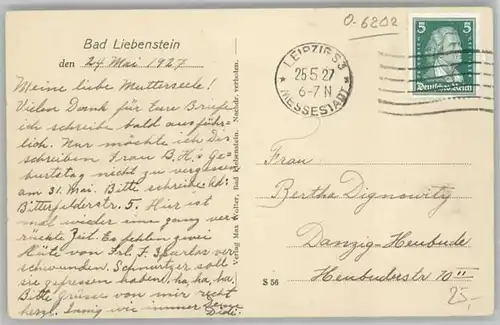 Bad Liebenstein
den 24 Mai 1927
Meine liebe Mutterseele!
Vielen Dank für Eure Briefe
ich schreibe bald ausführ-
lich. Nur möchte ich Dir
schreiben Frau B. H.'s Ge-
burtstag nicht zu vergessen
am 31. Mai. Bitte schreibe Ad:
Bitterfelderstr. 5. Hier ist
mal wieder eine ganz ver-
rückte Zeit. Es fehlen zwei
Hüte von Frl. F. Sparlos ver-
schwunden. Schnurtzer soll
sie gefressen haben, ha, ha, ha.
Bitte grüsse von mir recht
herzl. Innig wie immer Deine
Didi.
Verlag Max Wolter, Bad Liebenstein. Nachdr. verboten.
O-6202
LEIPZIG S3
25.5.27
6-7 N
MESSESTADT
5 5
Deutsches Reich
Frau
Bertha Dignowity
Danzig-Heubude
Heubuderstr. 70 II
S 56
25,-